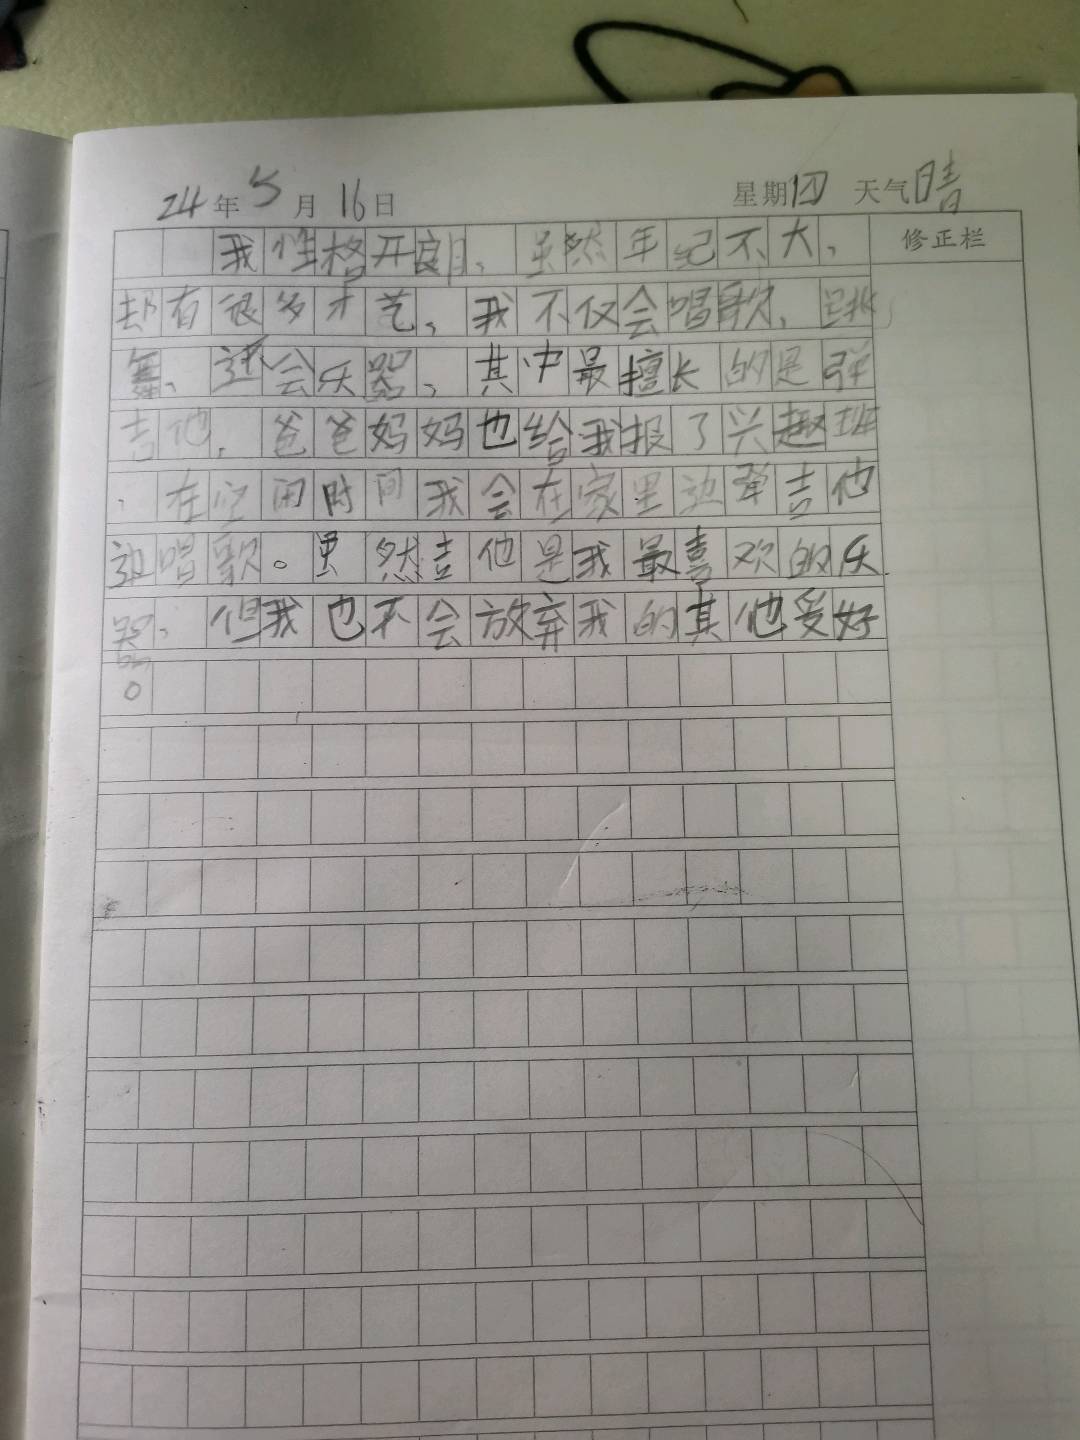 24年5月16日 星期四 天气晴
修正栏
我性格开朗，虽然年纪不大，
却有很多才艺，我不仅会唱歌，跳
舞，还会乐器，其中最擅长的是弹
吉他，爸爸妈妈也给我报了兴趣班
，在空闲时间我会在家里边弹吉他
边唱歌。虽然吉他是我最喜欢的乐
器，但我也不会放弃我的其他爱好
。